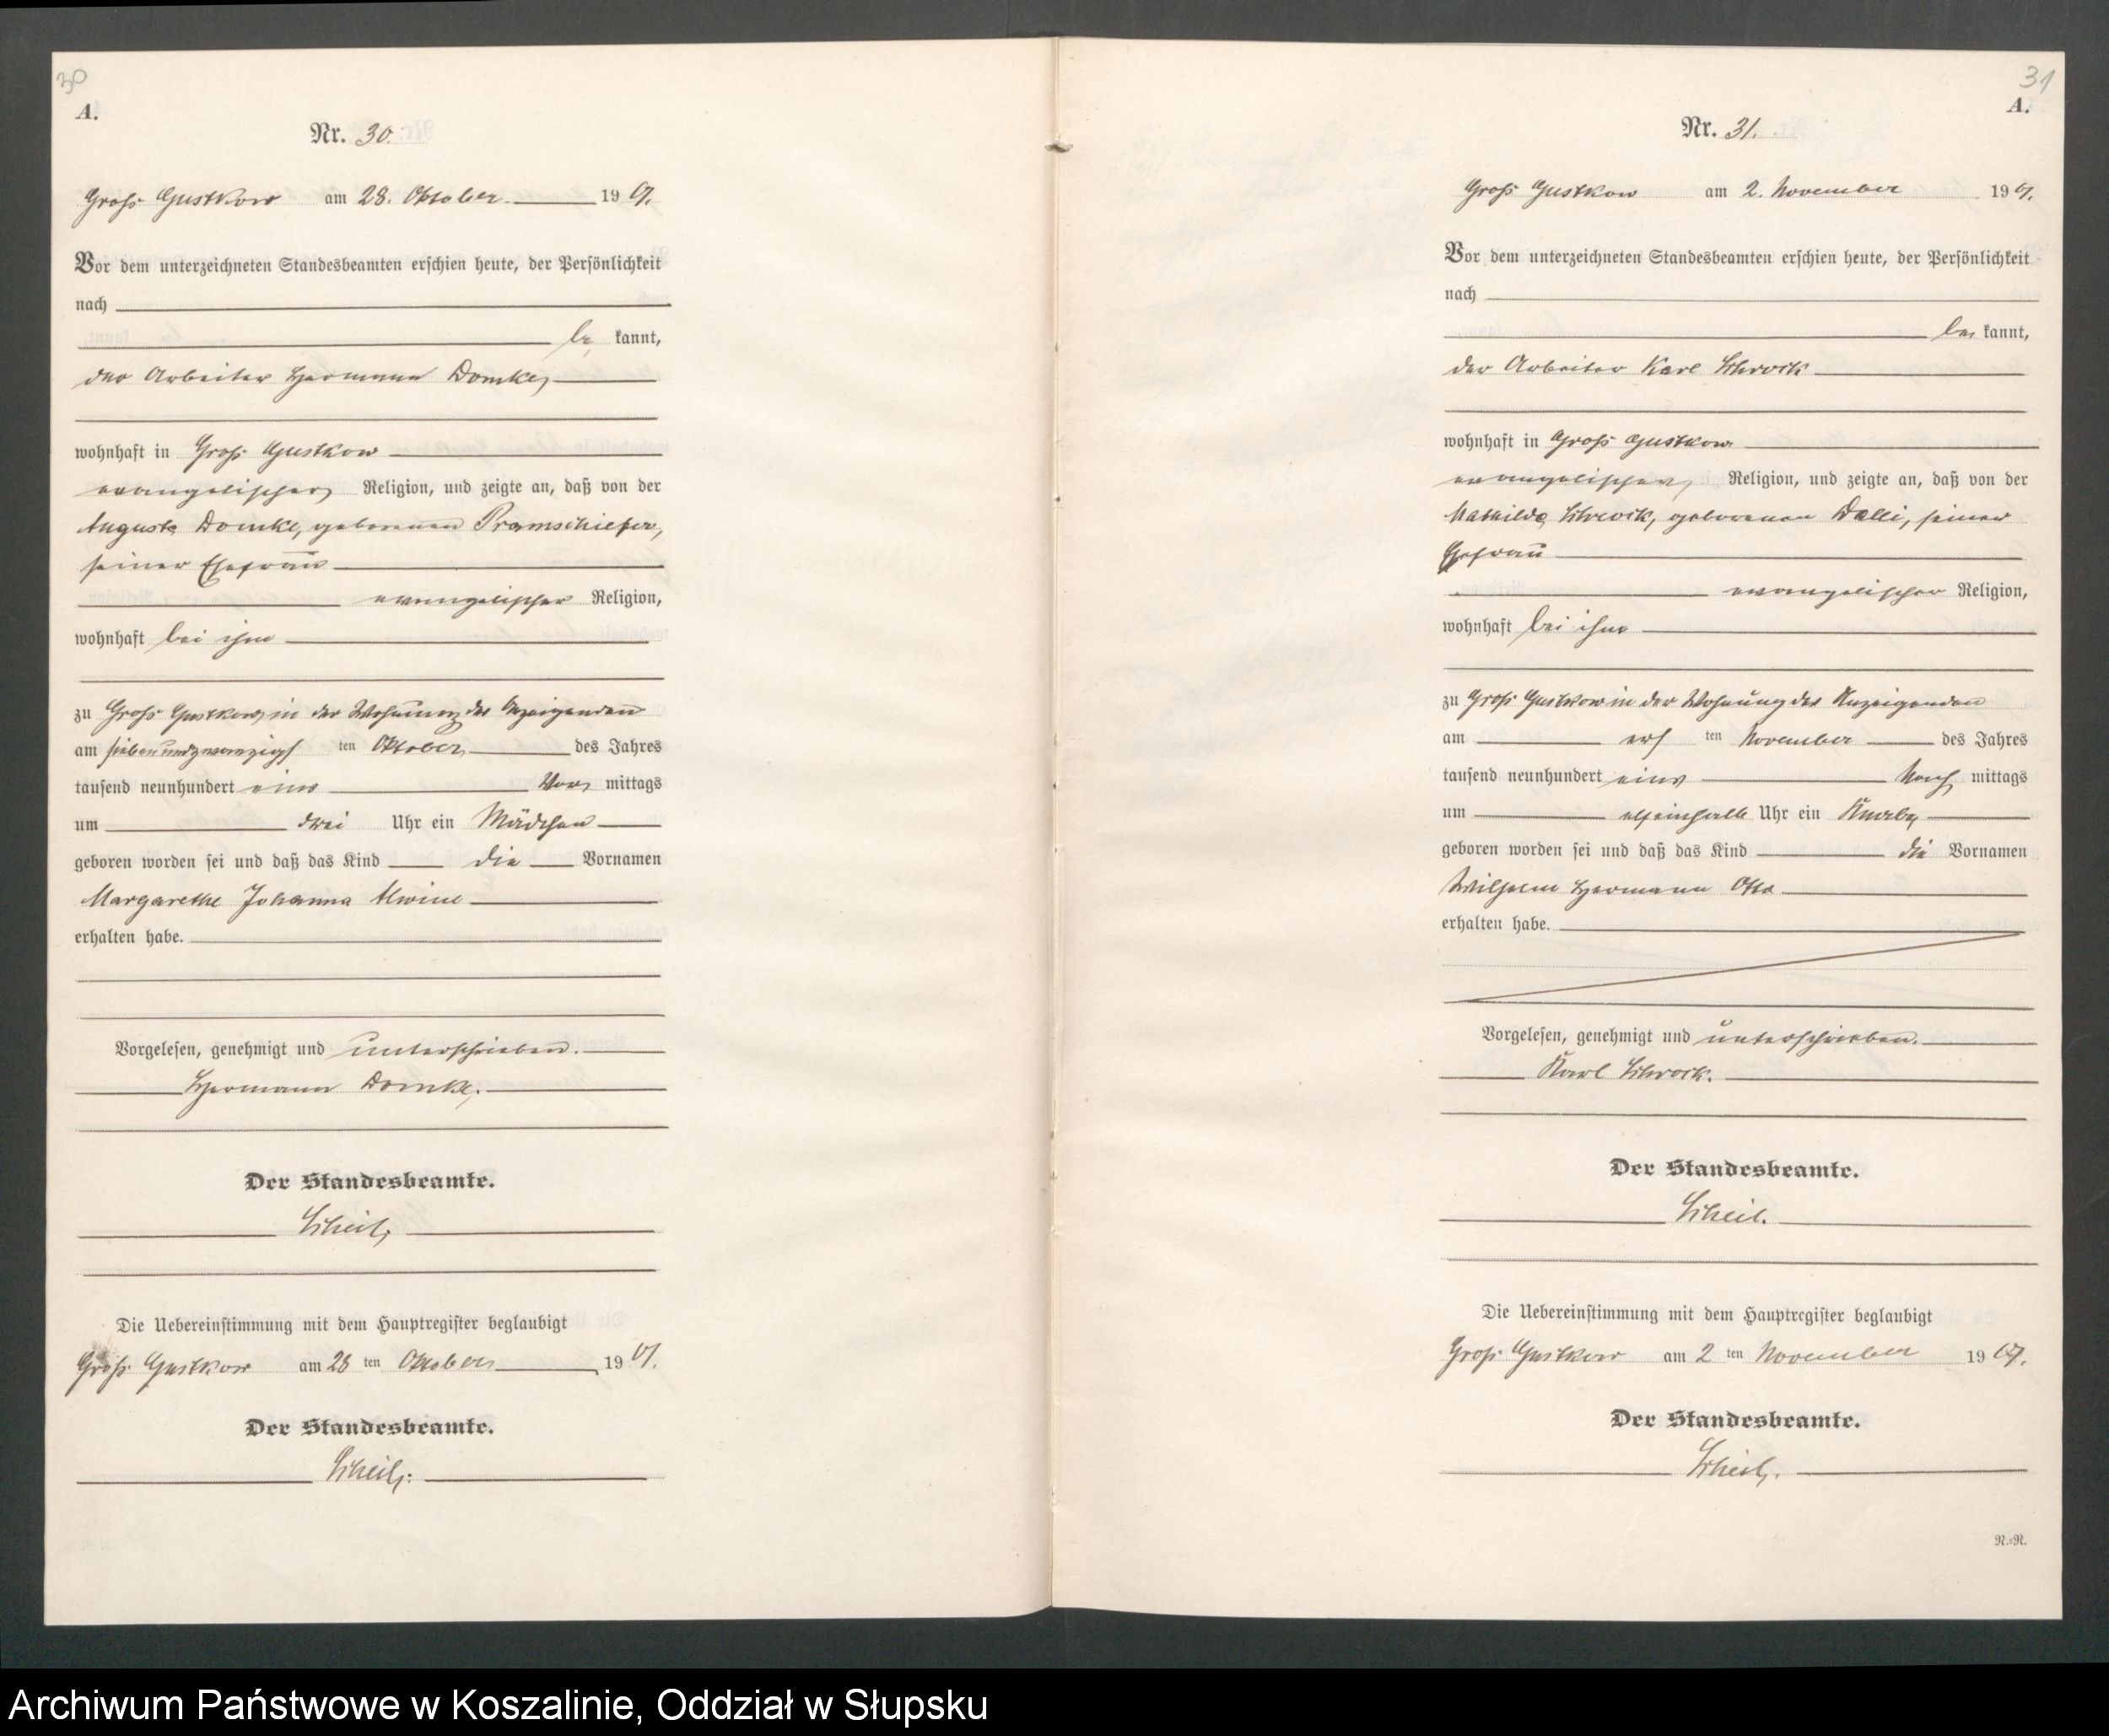 30
A.
Nr. 30.
Groß Gustkow am 28. Oktober 19 01.
Vor dem unterzeichneten Standesbeamten erschien heute, der Persönlichkeit
nach
be kannt,
der Arbeiter Hermann Domke,
wohnhaft in Groß Gustkow
evangelischer Religion, und zeigte an, daß von der
Auguste Domke, geborenen Pramschiefer,
seiner Ehefrau
evangelischer Religion,
wohnhaft bei ihm
zu Groß Gustkow in der Wohnung des Anzeigenden
am siebenundzwanzigs ten Oktober des Jahres
tausend neunhundert eins Vor mittags
um drei Uhr ein Mädchen
geboren worden sei und daß das Kind die Vornamen
Margarethe Johanna Alwine
erhalten habe.
Vorgelesen, genehmigt und unterschrieben.
Hermann Domke.
Der Standesbeamte.
Scheil.
Die Uebereinstimmung mit dem Hauptregister beglaubigt
Groß Gustkow am 28 ten Oktober 19 01.
Der Standesbeamte.
Scheil.
31
A.
Nr. 31.
Groß Gustkow am 2. November 19 01.
Vor dem unterzeichneten Standesbeamten erschien heute, der Persönlichkeit
nach
be kannt,
der Arbeiter Karl Schrock
wohnhaft in Groß Gustkow
evangelischer Religion, und zeigte an, daß von der
Mathilde Schrock, geborenen Dalli, seiner
Ehefrau
evangelischer Religion,
wohnhaft bei ihm
zu Groß Gustkow in der Wohnung des Anzeigenden
am ers ten November des Jahres
tausend neunhundert eins Nach mittags
um elfeinhalb Uhr ein Knabe
geboren worden sei und daß das Kind die Vornamen
Wilhelm Hermann Otto
erhalten habe.
Vorgelesen, genehmigt und unterschrieben.
Karl Schrock.
Der Standesbeamte.
Scheil.
Die Uebereinstimmung mit dem Hauptregister beglaubigt
Groß Gustkow am 2 ten November 19 01.
Der Standesbeamte.
Scheil.
N.=N.
Archiwum Państwowe w Koszalinie, Oddział w Słupsku